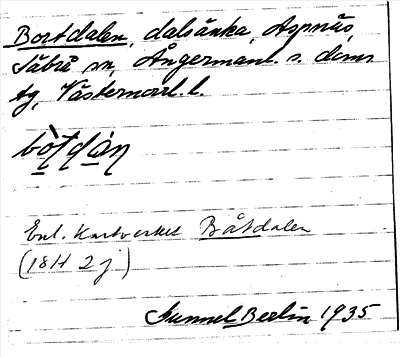 Bortdalen, dalsänka, Aspnäs,
Säbrå sn, Ångermanl. s. doms
tg, Västernorrl. l.
bòtdàn
Enl. Kartverket Båtdalen
(18H 2j)
Gunnel Berlin 1935